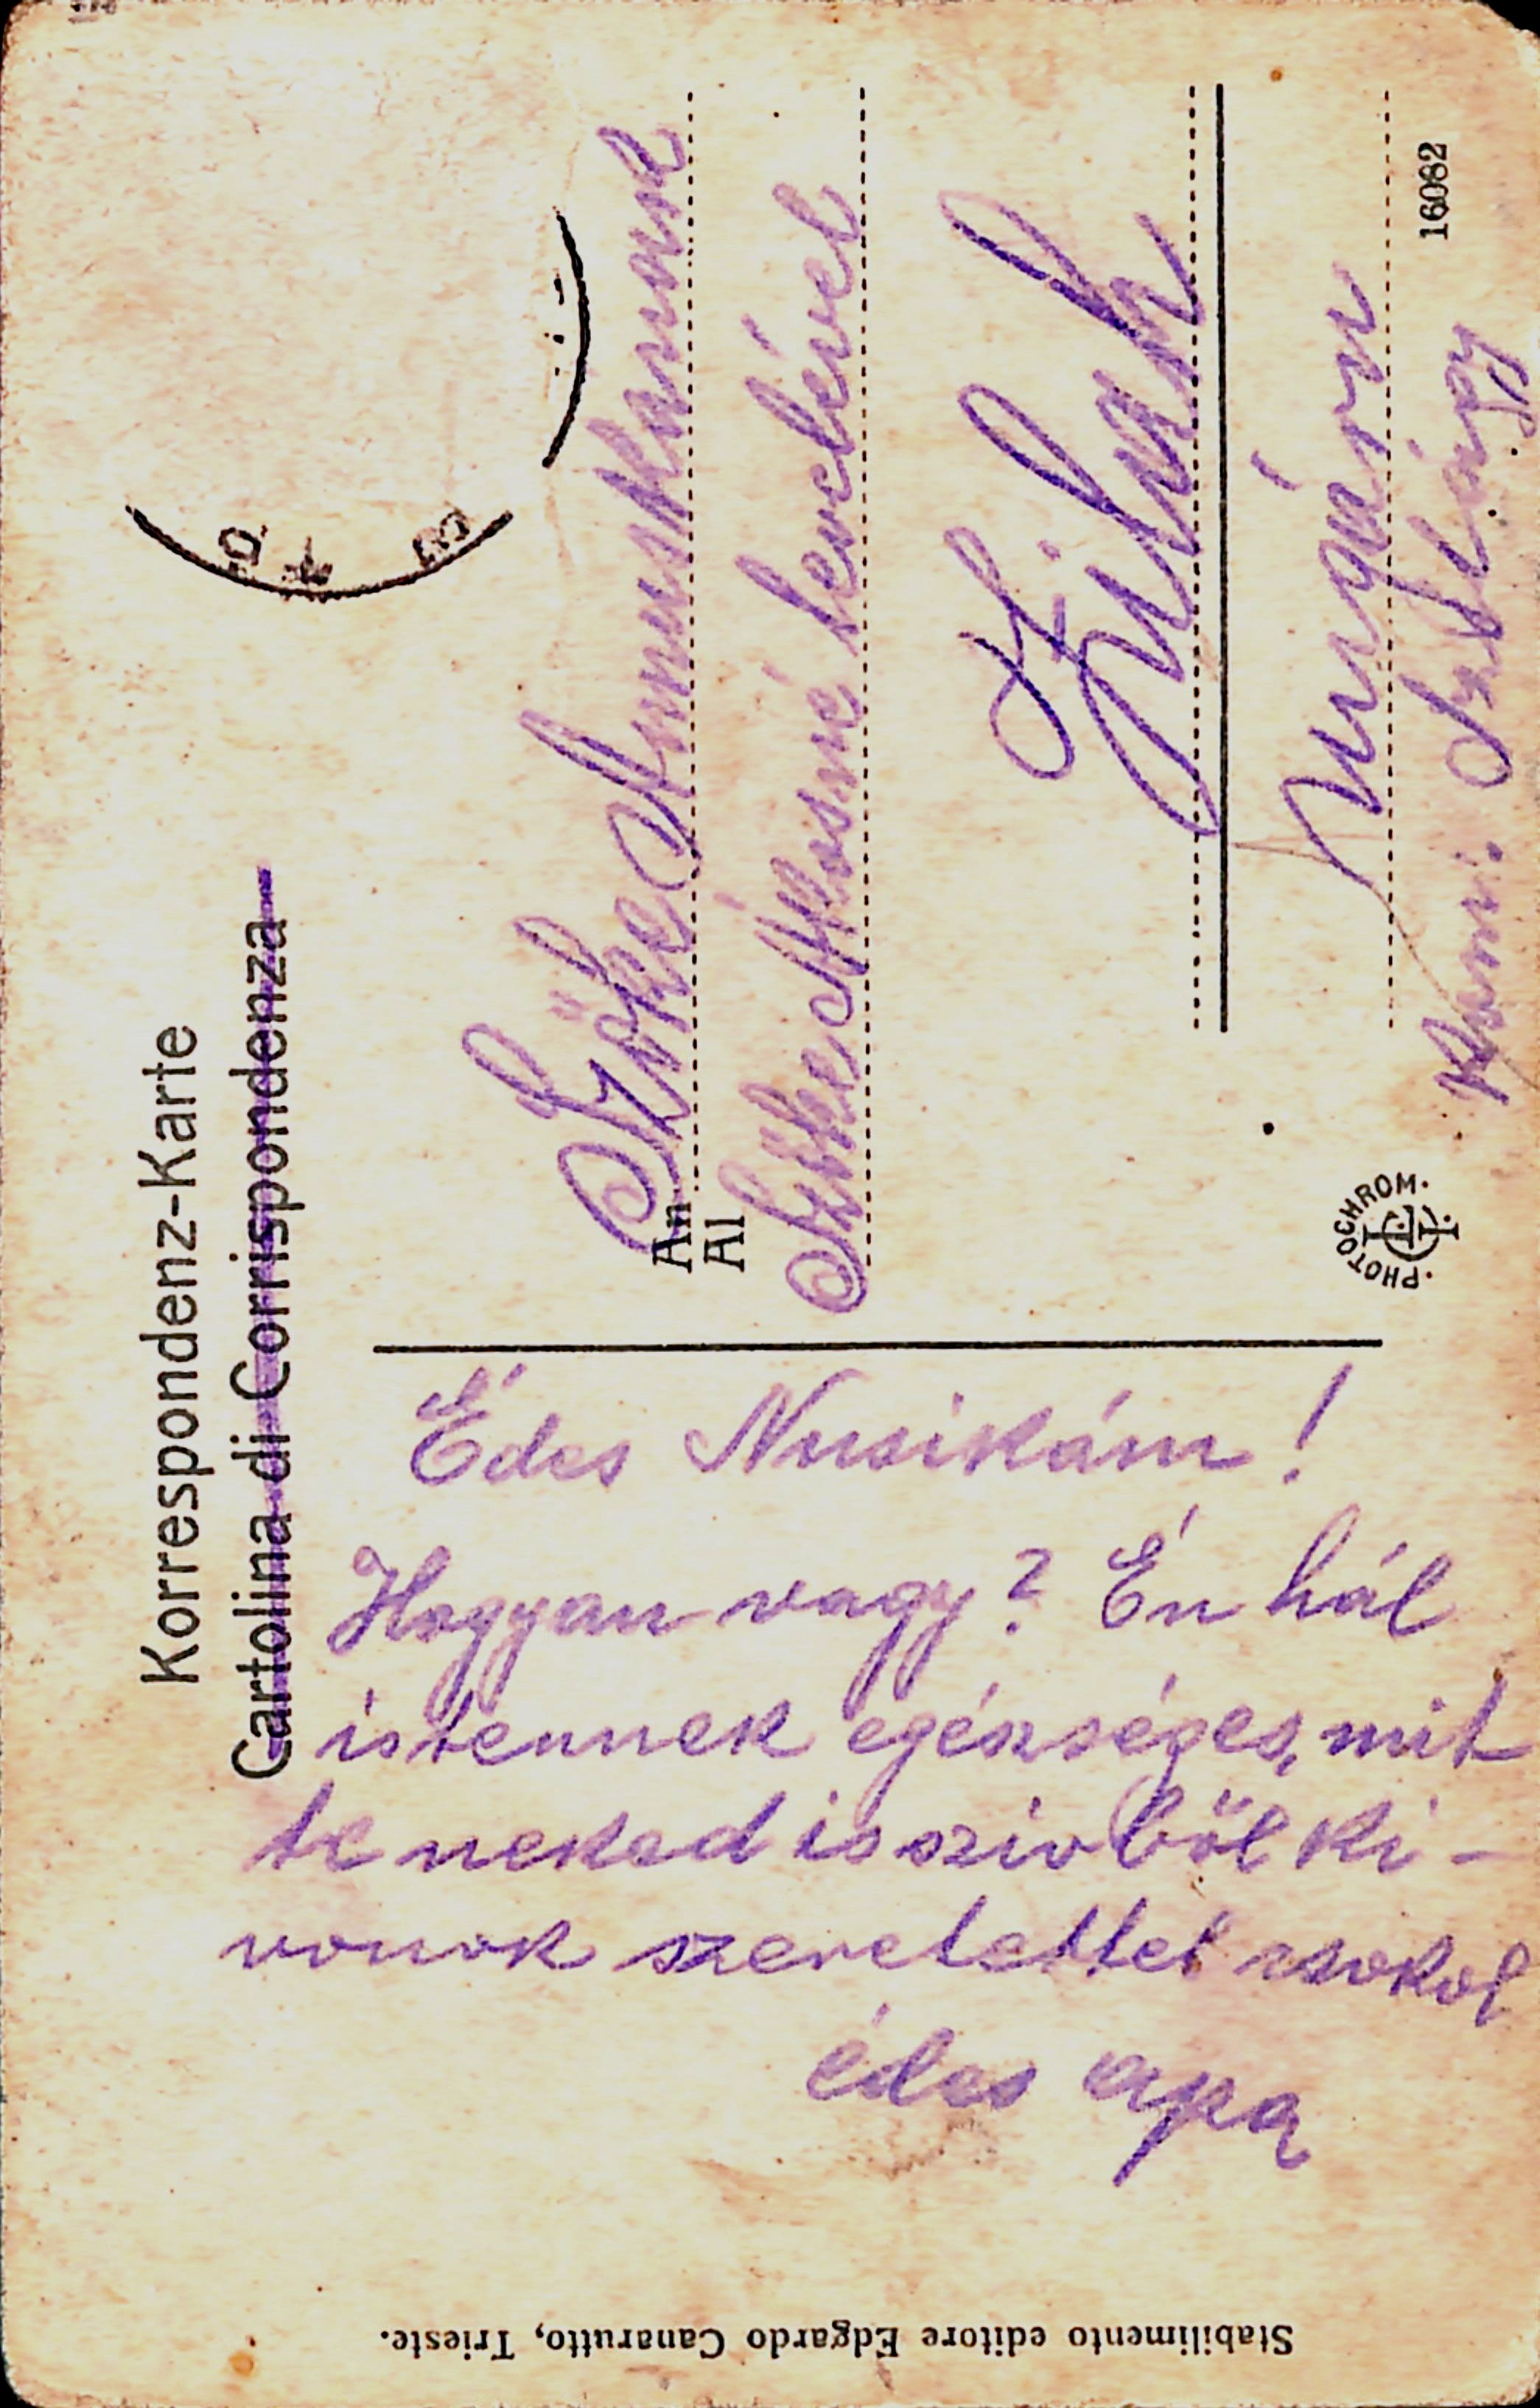 Korrespondenz-Karte
Cartolina di Corrispondenza
An Szőke Annuskának
Al
Szőke Ákosné levelével
Zilah
Ungarn
Kom: Szilágy
16082
PHOTOCHROM
Édes Nusikám!
Hogyan vagy? Én hál
istennek egészséges, mit
te neked is szivből ki-
vonok szeretettel csokol
édes apa
Stabilimento editore Edgardo Canarutto, Trieste.